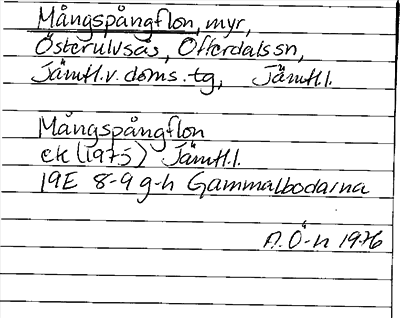 Mångspångflon, myr,
Österulvsås, Offerdals sn,
Jämtl.v. doms. tg, Jämtl.l.
Mångspångflon
ek (1975) Jämtl.l.
19E 8-9 g-h Gammalbodarna
A.Ö-n 1976